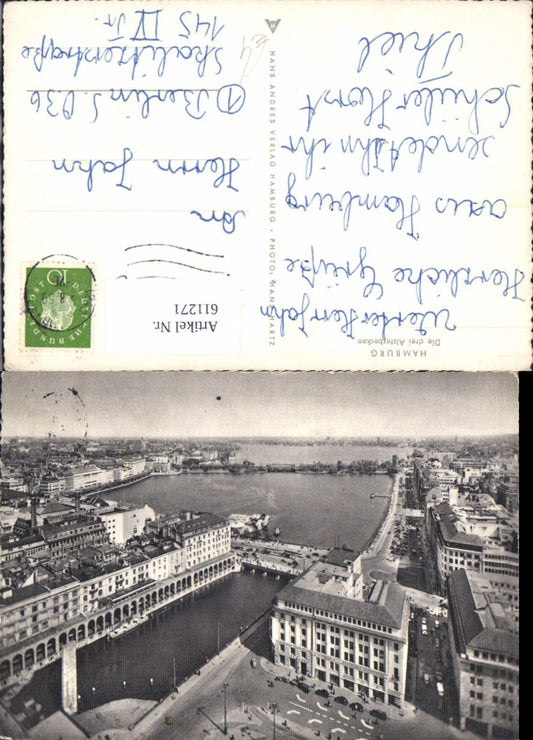 HAMBURG
Die drei Alsterbecken
Werter Herr Jahn
Herzliche Grüße
aus Hamburg
sendet Ihn ihr
Schüler Horst
Thiel
HANS ANDRES VERLAG HAMBURG · PHOTO: HANS HARTZ
An
Herrn Jahn
① Berlin S.O36
Skalitzerstraße
145 IV Tr.
10
DEUTSCHE BUNDESPOST
Artikel Nr.
611271